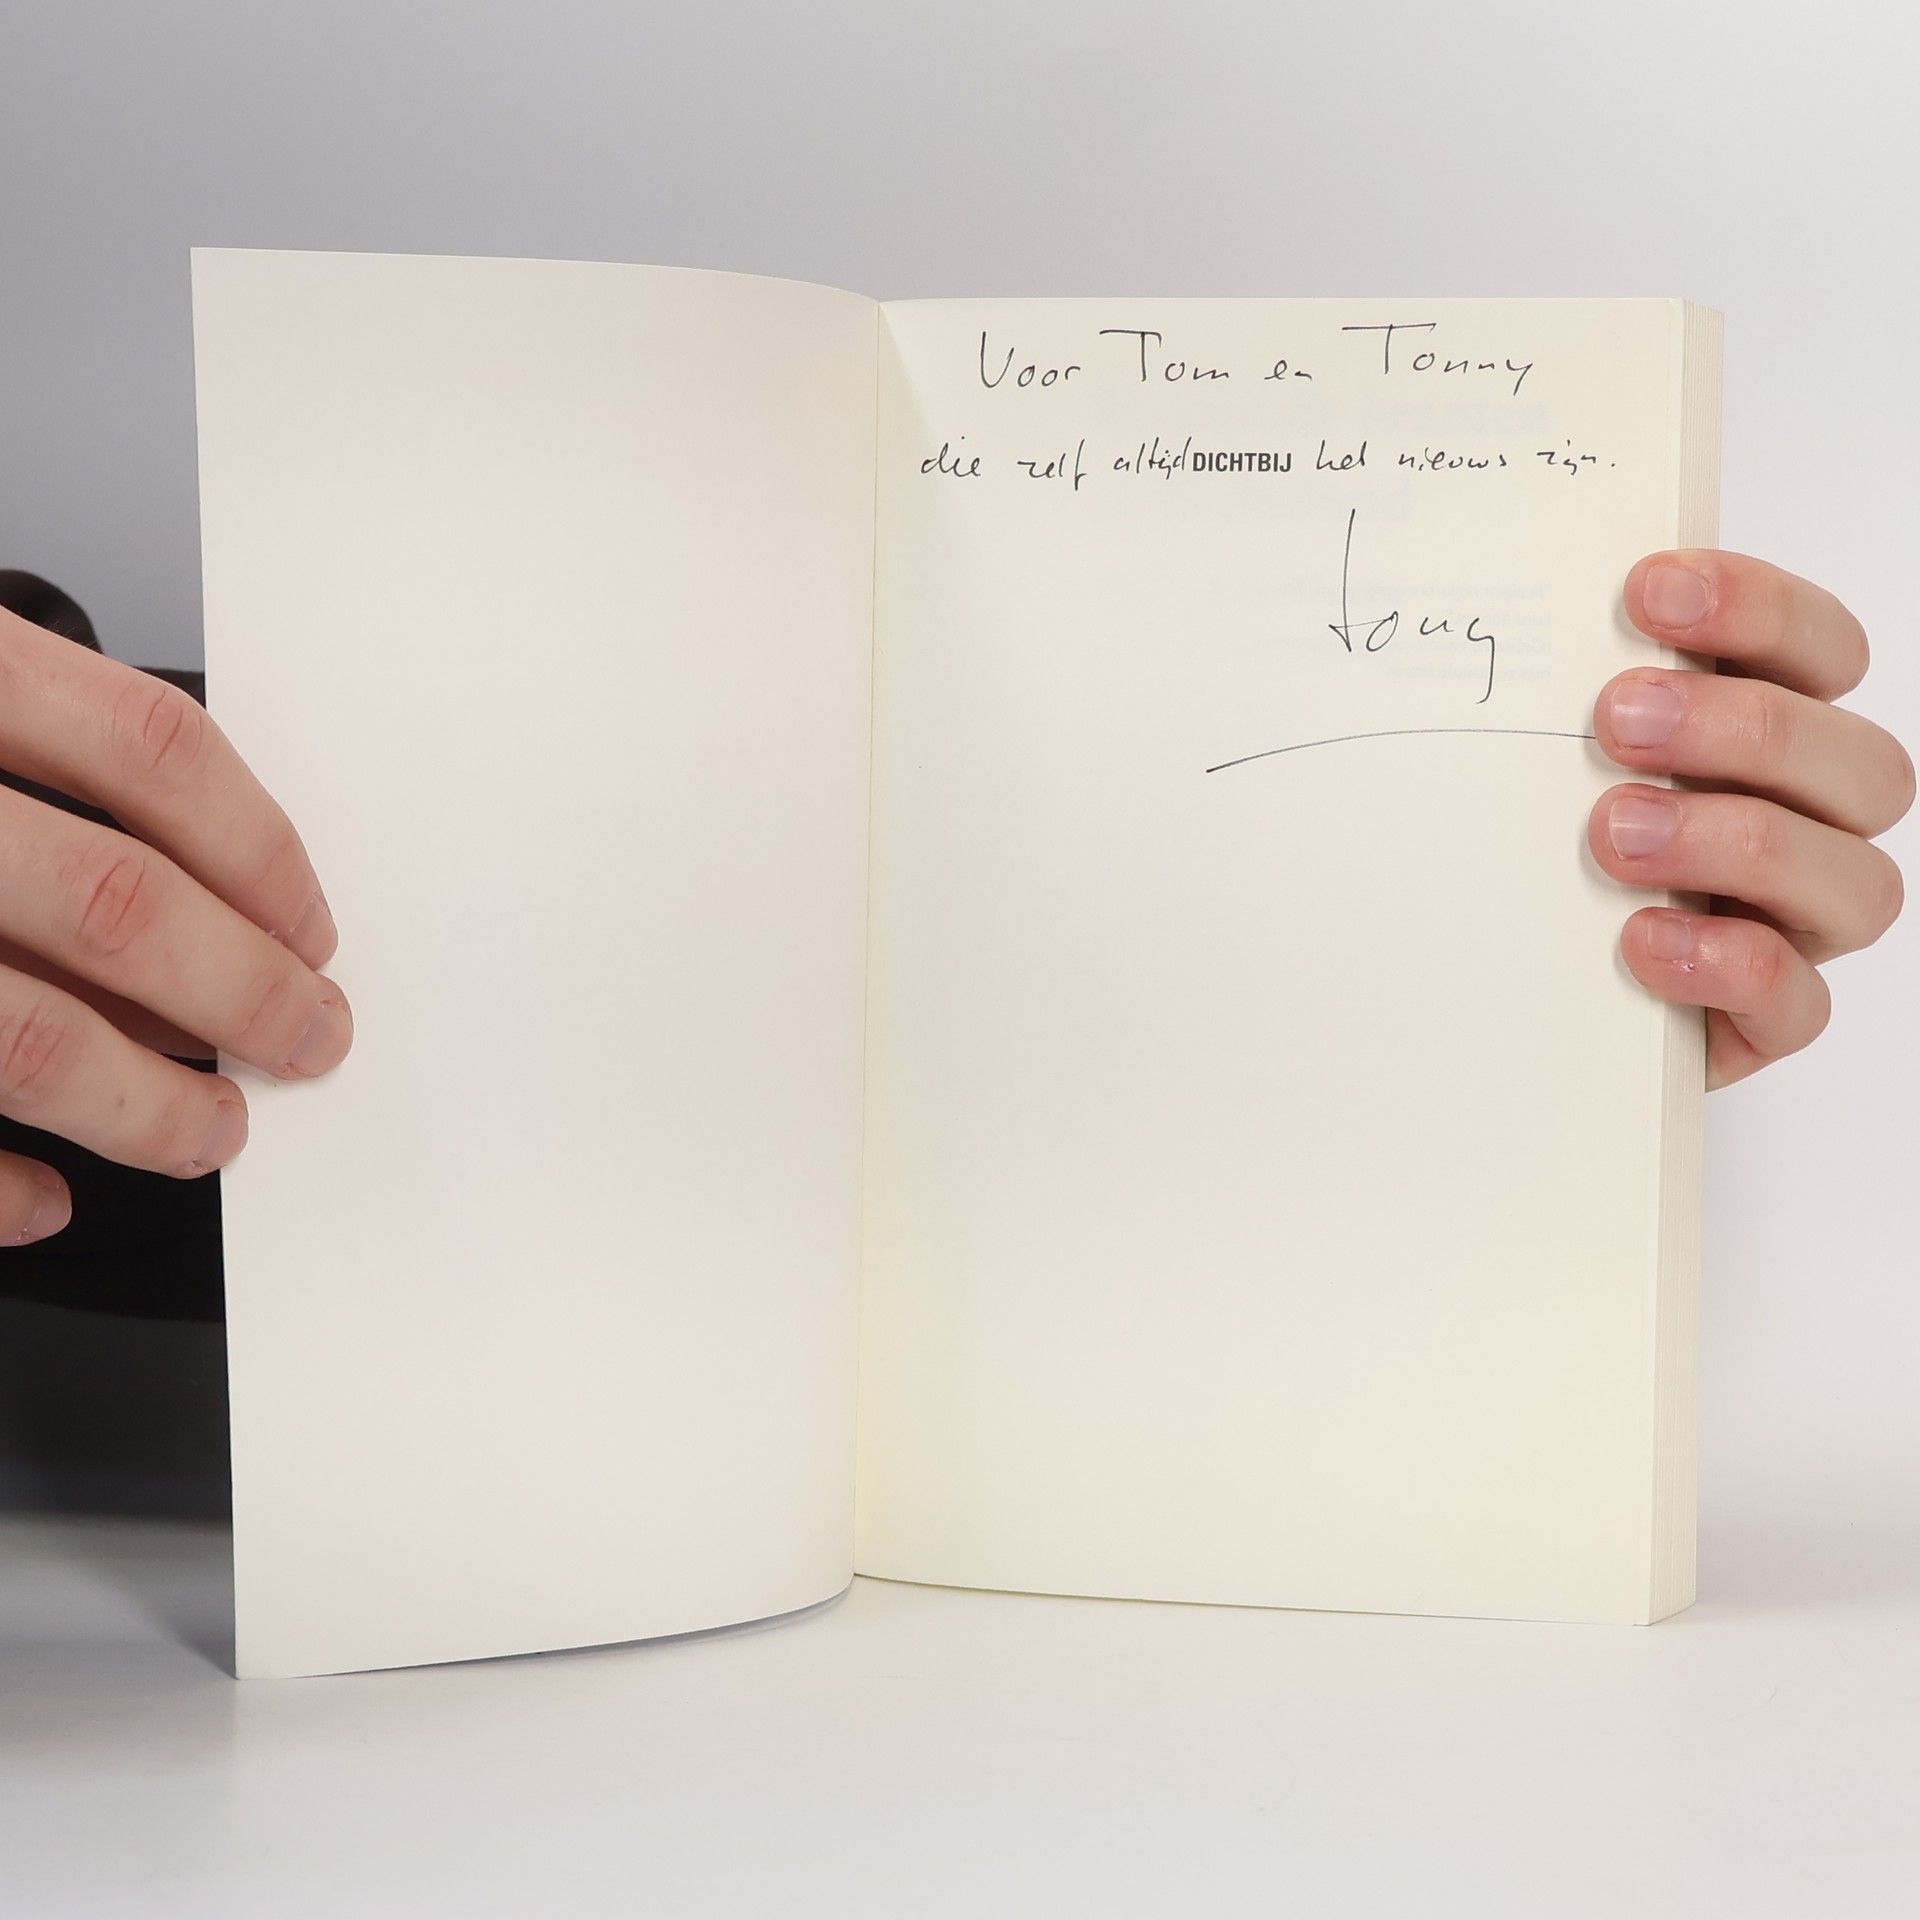 Voor Tom en Tonny
die zelf altijd DICHTBIJ het nieuws zijn.